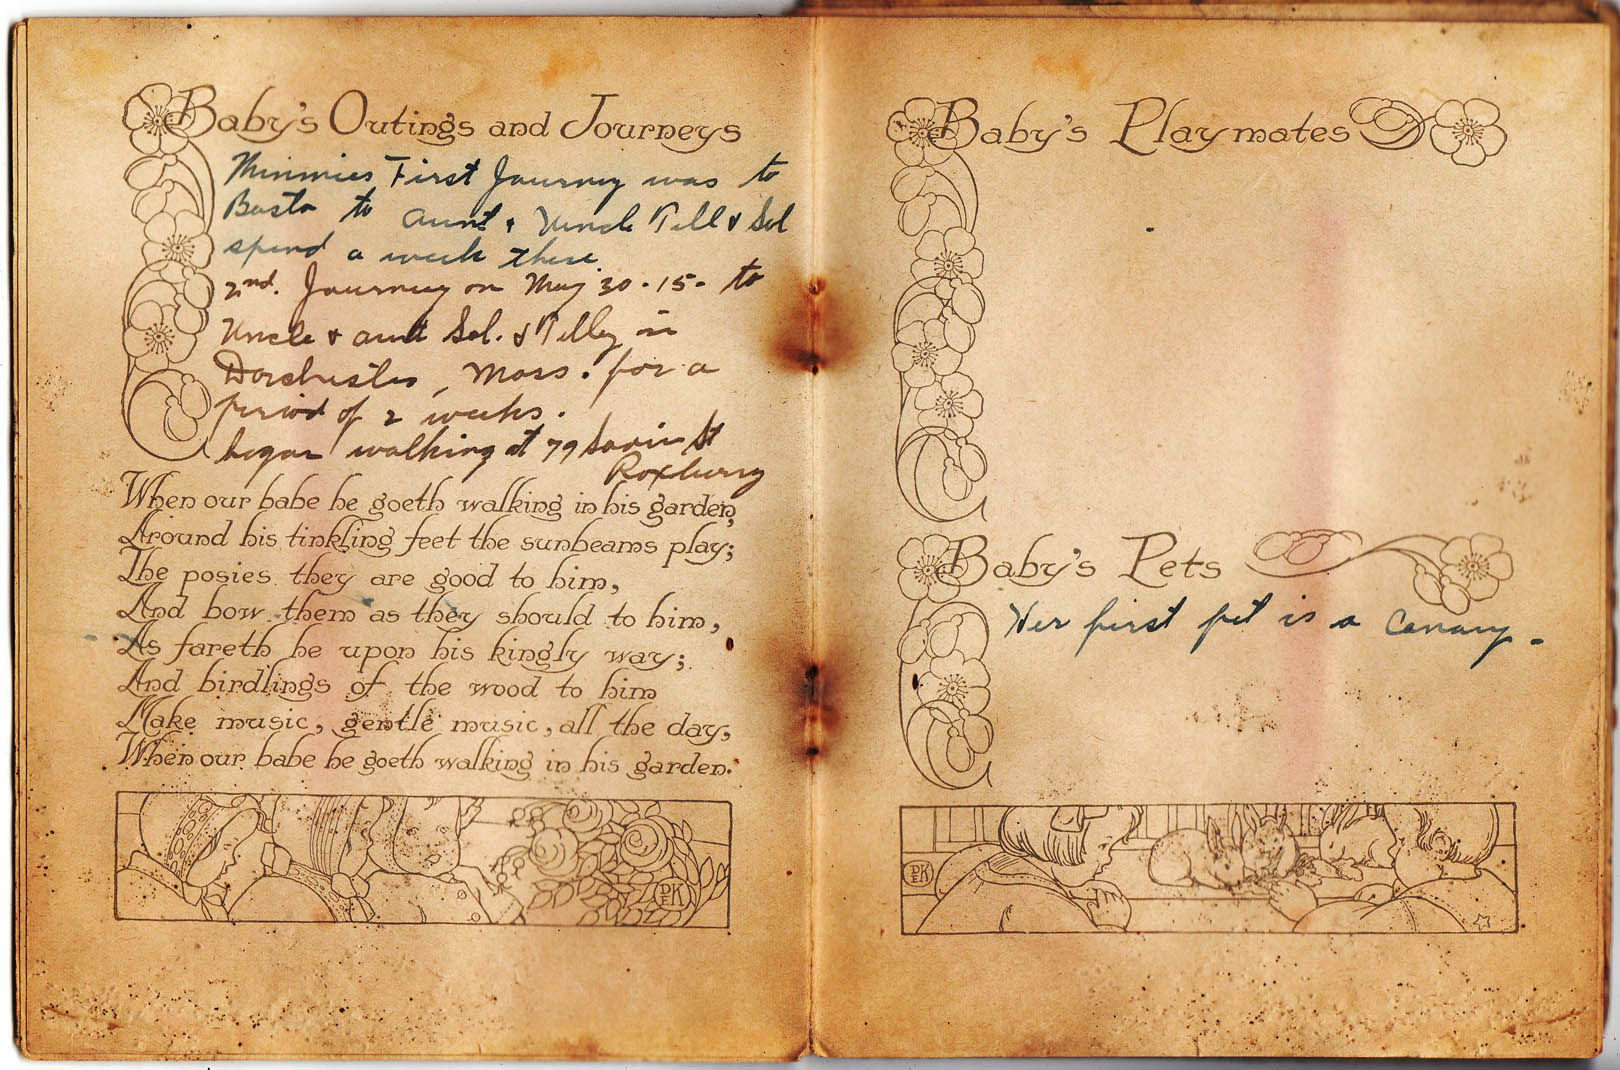 Baby's Outings and Journeys
Minnies First Journey was to
Bosto to Aunt & Uncle Till & Sol
spend a week there
2nd. Journey on May 30 - 15 - to
Uncle & aunt Sol. & Tilley in
Dorchester, Mass. for a
period of 2 weeks.
began walking at 79 Savin St
Roxburry
When our babe he goeth walking in his garden,
Around his tinkling feet the sunbeams play;
The posies they are good to him,
And bow them as they should to him,
As fareth he upon his kingly way;
And birdlings of the wood to him
Make music, gentle music, all the day,
When our babe he goeth walking in his garden.
Baby's Playmates
Baby's Pets
Her first pet is a Canary -